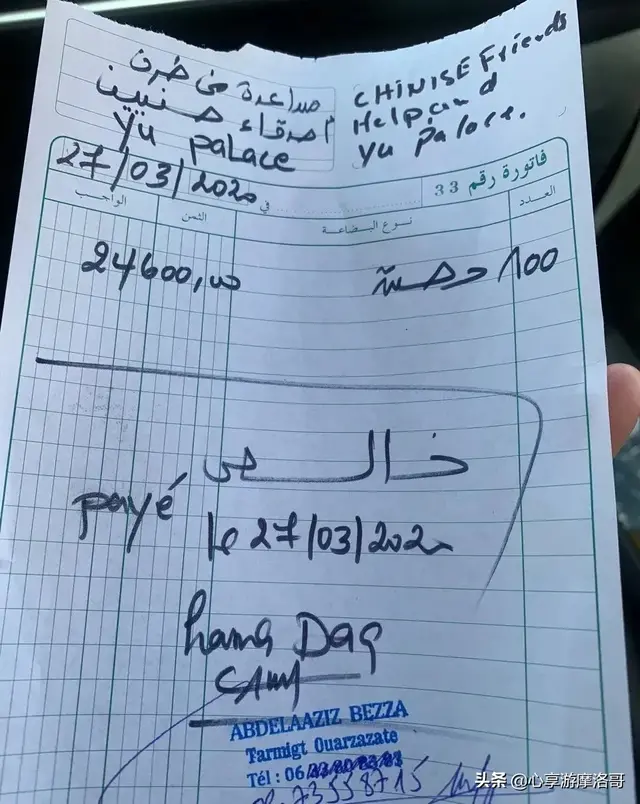 مساعدة من طرف
أصدقاء صنيين
Yu Palace
CHINISE Friends
Help and
Yu Palace.
27/03/2020
في
فاتورة رقم 33
العدد
نوع البضاعة
الثمن
الواجب
100 حصة
24600,00
خالص
payé
le 27/03/2020
ABDELAAZIZ BEZZA
Tarmigt Ouarzazate
Tél : 06
73558715
头条 @心享游摩洛哥